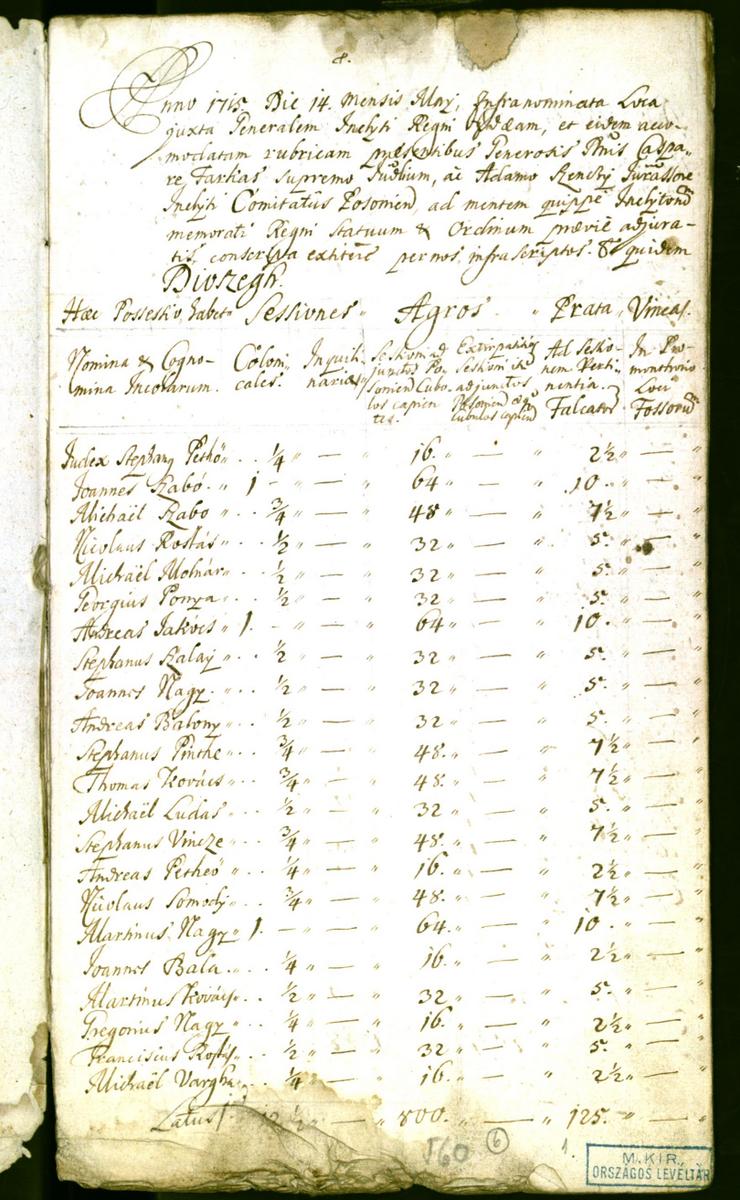 Anno 1715. Die 14. Mensis May, Infranominata Loca
juxta Generalem Inclyti Regni Ideam, et eidem acco-
modatam rubricam præsentibus Generosis Dnis Caspa-
re Farkas Supremo Judlium, ac Adamo Rensky Jurassore
Inclyti Comitatus Posonien, ad mentem quippe Inclytorum
memorati Regni Statuum & Ordinum prævie adjura-
tis, conscripta extitere per nos infrascriptos. & quidem
Dioszegh.
Hæc Possessio habet Sessiones Agros Prata Vineas.
Nomina & Cogno-
mina Incolarum.
Coloni
cales.
Inquili
narias
Sessioni ad
junctos Po-
sonien Cubu-
los capien
tes.
Extirpatitios
Sessioni
adjunctos
Posonien
cubulos capien
Ad Sessio-
nem Perti-
nentia
Falcator
In Pro-
monthorio
Loci
Fossorum
Judex Stephanus Pethö " . . 1/4 " — " 16. " — " 2 1/2 " — "
Joannes Szabó . " 1 - " — " 64 " — " 10 . " — "
Michaël Szabo " . . 3/4 " — " 48 " — " 7 1/2 " — "
Nicolaus Rostás " . . 1/2 " — " 32 " — " 5. " — "
Michaël Molnár " . . 1/2 " — " 32 " — " 5. " — "
Georgius Ponya " . . 1/2 " — " 32 " — " 5. " — "
Andreas Jakocs " 1. - " — " 64 " — " 10. " — "
Stephanus Szalay " . . 1/2 " — " 32 " — " 5. " — "
Joannes Nagy . " . . 1/2 " — " 32 " — " 5. " — "
Andreas Balony " . . 1/2 " — " 32 " — " 5. " — "
Stephanus Pinthe " . . 3/4 " — " 48. " — " 7 1/2 " — "
Thomas Kovács " . . 3/4 " — " 48. " — " 7 1/2 " — "
Michaël Ludas " . . 1/2 " — " 32 " — " 5. " — "
Stephanus Vincze " . . 3/4 " — " 48. " — " 7 1/2 " — "
Andreas Petheö " . . 1/4 " — " 16. " — " 2 1/2 " — "
Nicolaus Somody " . . 3/4 " — " 48. " — " 7 1/2 " — "
Martinus Nagy " 1. - " — " 64. " — " 10. " — "
Joannes Bala . " . . 1/4 " — " 16. " — " 2 1/2 " — "
Martinus Kovács " . . 1/2 " — " 32 " — " 5. " — "
Gregorius Nagy " . . 1/4 " — " 16. " — " 2 1/2 " — "
Franciscus Rostás " . . 1/2 " — " 32 " — " 5. " — "
Michaël Vargha . . 1/4 " — " 16. " — " 2 1/2 " — "
Latus 12 1/2 " — " 800. " — " 125. " — "
560 6 1.
M. KIR.
ORSZÁGOS LEVÉLTÁR